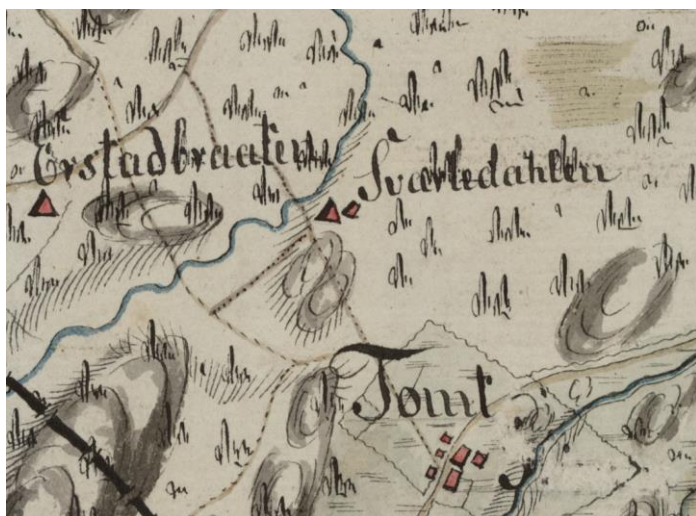 Erstadbraaten
Svartedahlen
Tomt